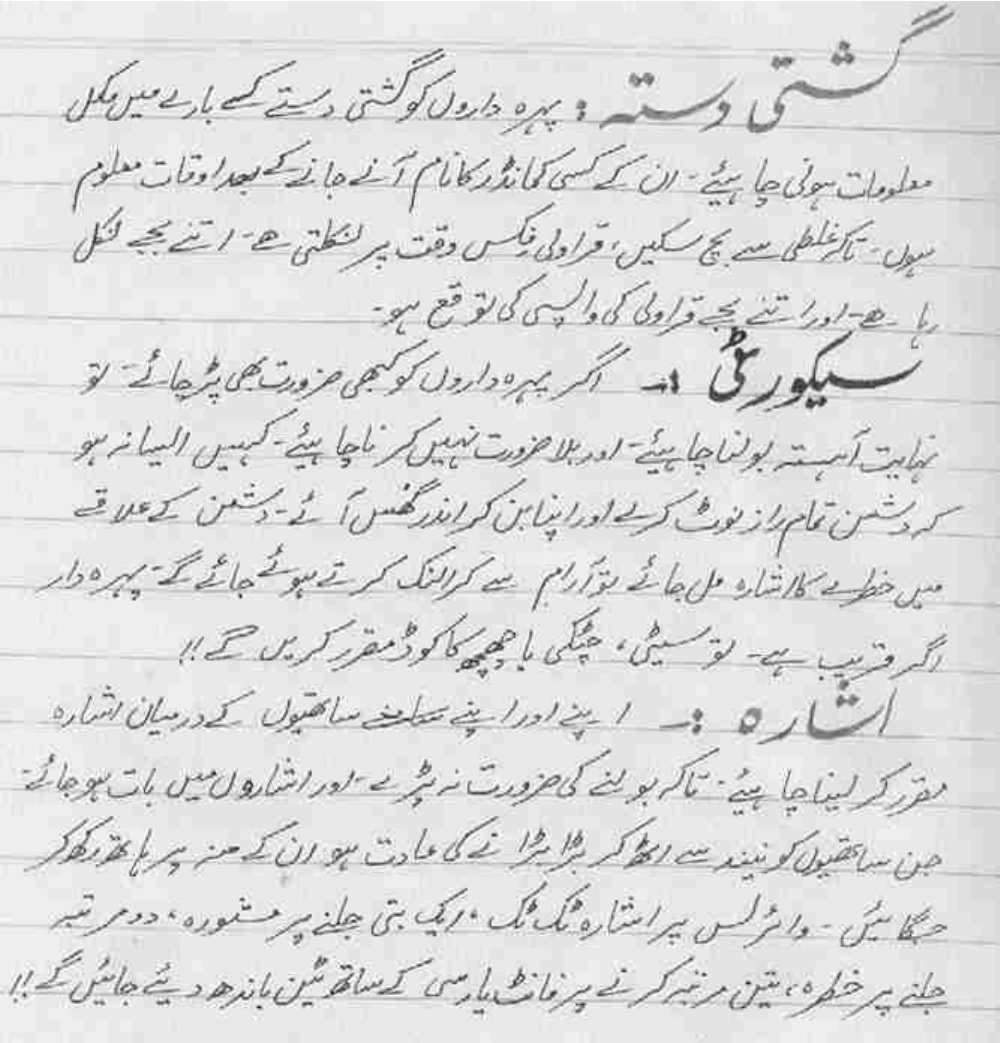 گشتی دستہ : پہرہ داروں کو گشتی دستے کے بارے میں مکمل
معلومات ہونی چاہیئے۔ ان کے کسی کمانڈر کا نام آنے جانے کے بعد اوقات معلوم
ہوں۔ تاکہ غلطی سے بچ سکیں، قراولی فکس وقت پر نکلتی ھے۔ اتنے بجے نکل
رہا ھے۔ اور اتنے بجے قراولی کی واپسی کی توقع ہو۔
سیکورٹی :۔ اگر پہرہ داروں کو کبھی ضرورت بھی پڑ جائے۔ تو
نہایت آہستہ بولنا چاہیئے۔ اور بلا ضرورت نہیں کرنا چاہیئے۔ کہیں ایسا نہ ہو
کہ دشمن تمام راز نوٹ کرلے اور اپنا بن کر اندر گھس آئے۔ دشمن کے علاقے
میں خطرے کا اشارہ مل جائے تو آرام سے کرالنگ کرتے ہوئے جائے گے۔ پہرہ دار
اگر قریب ہے۔ تو سیٹی، چٹکی یا کا کوڈ مقرر کریں گے!!
اشارہ :۔ اپنے اور اپنے ساتھیوں کے درمیان اشارہ
مقرر کر لینا چاہیئے۔ تاکہ بولنے کی ضرورت نہ پڑے۔ اور اشاروں میں بات ہو جائے۔
جن ساتھیوں کو نیند سے اٹھ کر بڑا بڑا نے کی عادت ہو ان کے منہ پر ہاتھ رکھ کر
جگائیں۔ وائرلس پر اشارہ ٹک ٹک، ایک بتی جلنے پر مشورہ، دو مرتبہ
جلنے پر خطرہ، تین مرتبہ کرنے پر فائٹ یا رسی کے ساتھ ٹین باندھ دیئے جائیں گے!!